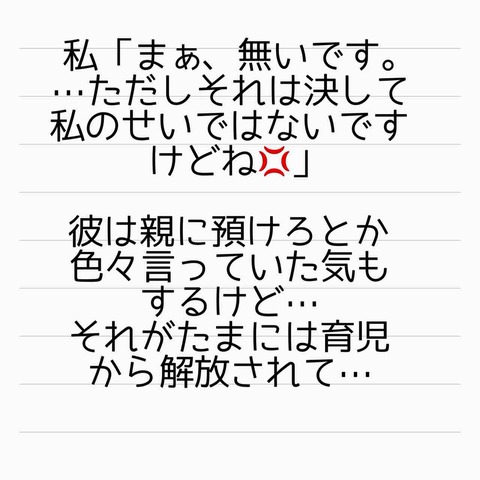 私「まぁ、無いです。
…ただしそれは決して
私のせいではないです
けどね💢」
彼は親に預けろとか
色々言っていた気も
するけど…
それがたまには育児
から解放されて…